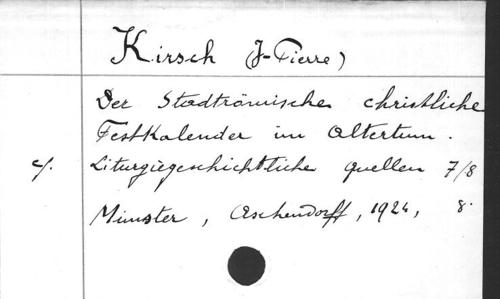 Kirsch (J-Pierre)
Der Stadtrömische christliche
Festkalender im Altertum.
c/. Liturgiegeschichtliche quellen 7/8
Münster, Aschendorff, 1924, 8°